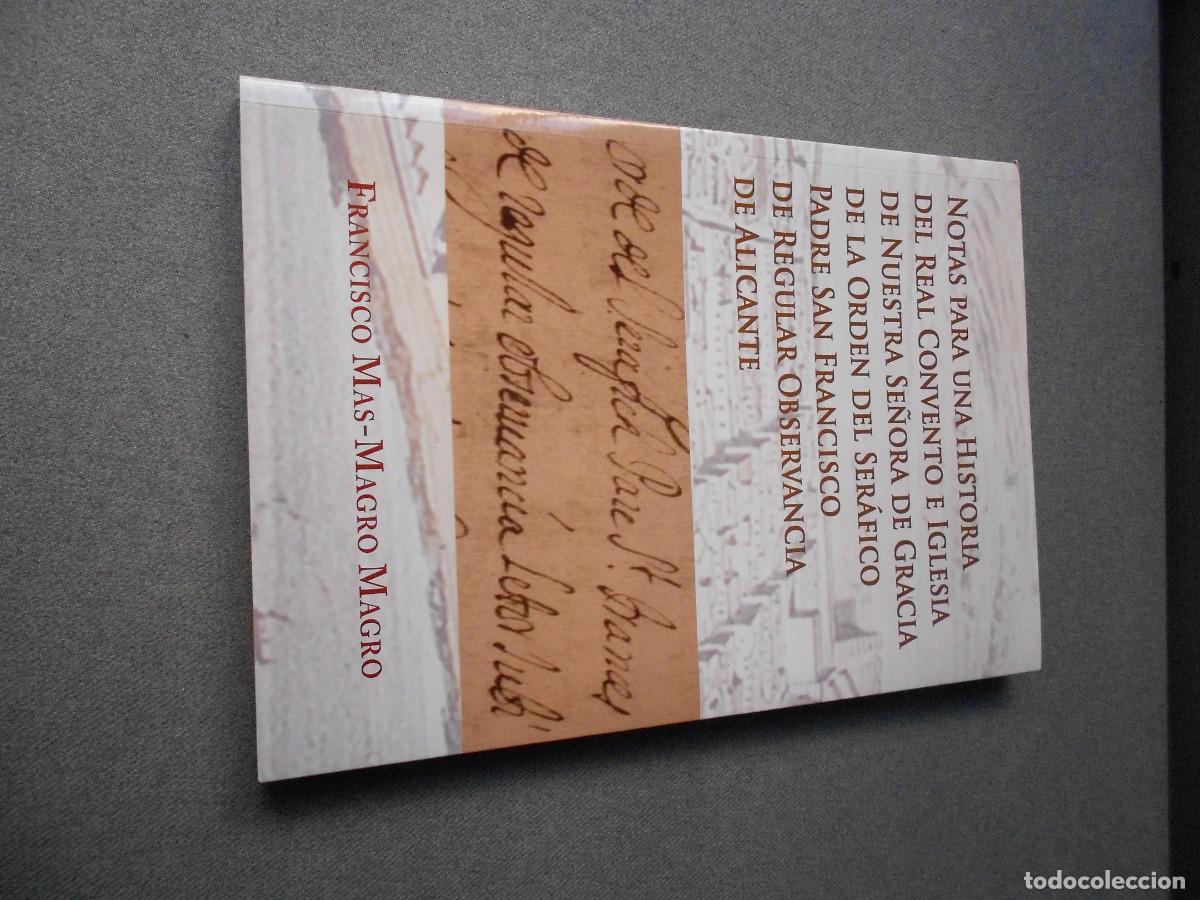 NOTAS PARA UNA HISTORIA
DEL REAL CONVENTO E IGLESIA
DE NUESTRA SEÑORA DE GRACIA
DE LA ORDEN DEL SERÁFICO
PADRE SAN FRANCISCO
DE REGULAR OBSERVANCIA
DE ALICANTE
Pare St.
de regular observancia
FRANCISCO MAS-MAGRO MAGRO
todocoleccion